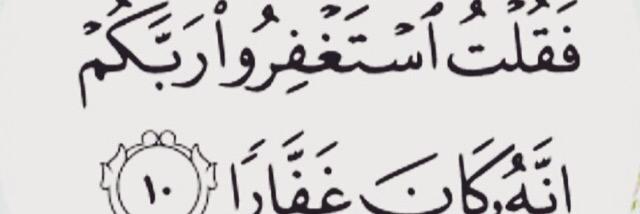 فَقُلْتُ ٱسْتَغْفِرُوا۟ رَبَّكُمْ
إِنَّهُۥ كَانَ غَفَّارًا ١٠